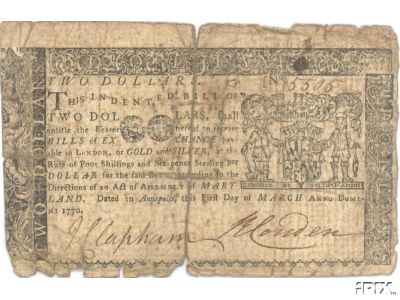 TWO DOLLARS. No 5505
THIS INDENTED BILL OF
TWO DOLLARS, shall
entitle the Bearer hereof to receive
BILLS of EXCHANGE pay-
able in LONDON, or GOLD and SILVER, at the
Rate of Four Shillings and Six-pence Sterling per
DOLLAR for the said Bill, according to the
Directions of an Act of ASSEMBLY of MARY
LAND. Dated in Annapolis, this First Day of MARCH ANNO DOMI-
NI 1770.
J Clapham
TWO DOLLARS